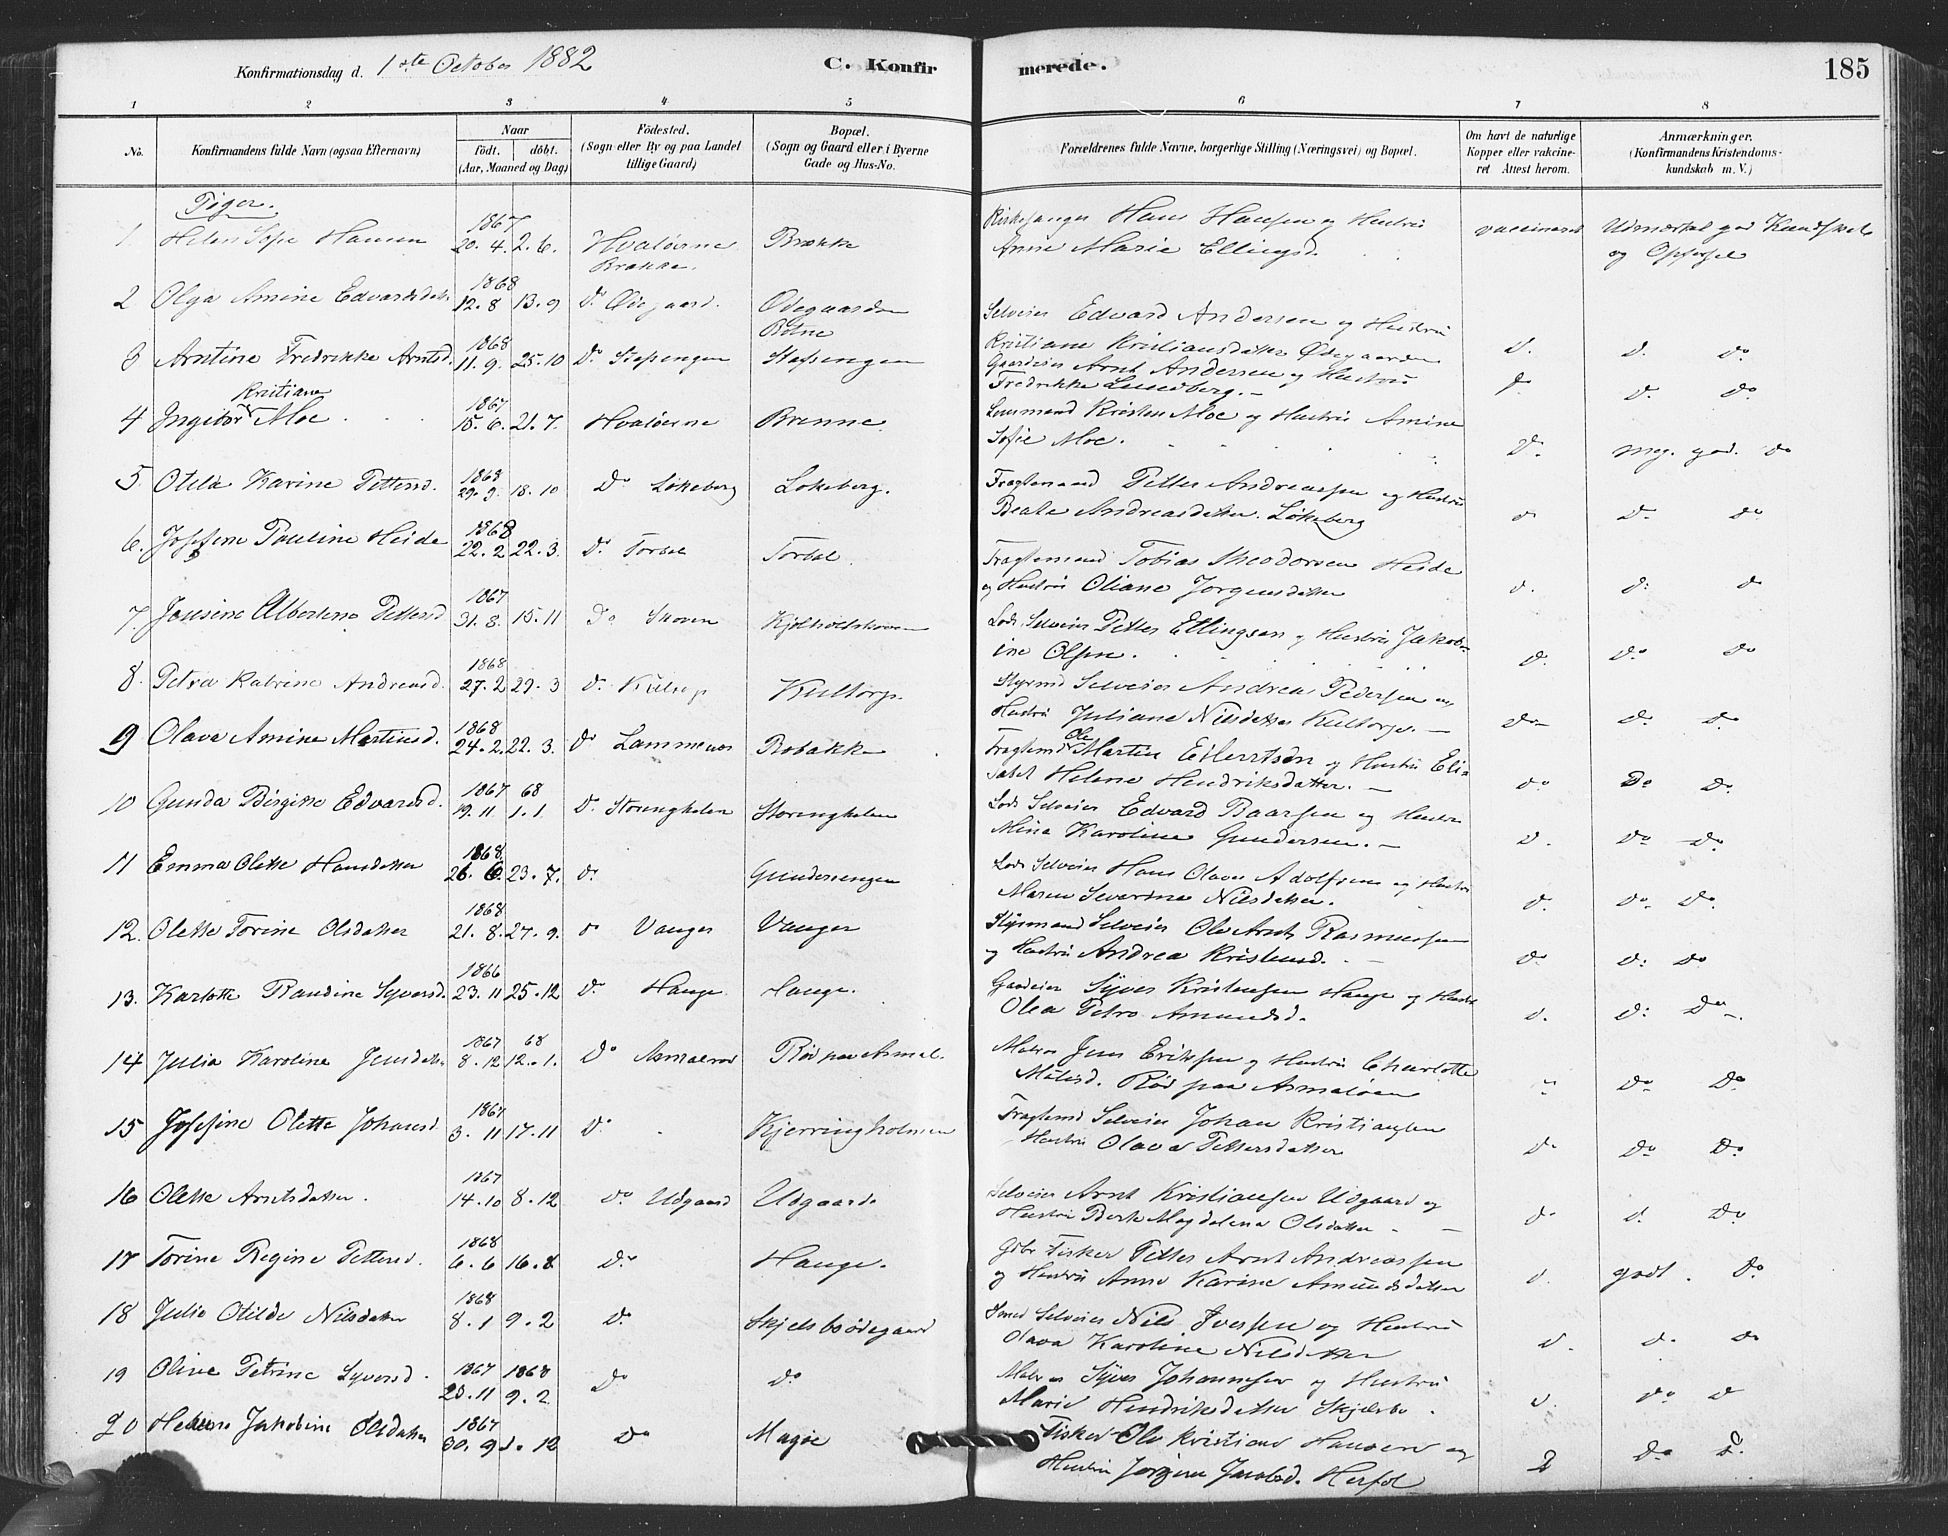 Konfirmationsdag d. 1ste October 1882 C. Konfirmerede. 185
1 2 3 4 5 6 7 8
No. Konfirmandens fulde Navn (ogsaa Efternavn) Naar født. døbt. (Aar, Maaned og Dag) Födested. (Sogn eller By og paa Landet tillige Gaard) Bopæl. (Sogn og Gaard eller i Byerne Gade og Hus-No. Forældrenes fulde Navne, borgerlige Stilling (Næringsvei) og Bopæl. Om havt de naturlige Kopper eller vakcineret Attest herom. Anmærkninger. (Konfirmandens Kristendomskundskab m. V.)
Piger.
1 Helen Sofie Hansen 1867 20.4. 2.6. Hvaløerne Brække Brække Kirkesanger Hans Hansen og Hustru
Anne Marie Ellingsd. vaccineret Udmærket god Kundskab og Opførsel
2 Olga Amine Edvardsdatter 1868 12.8 13.9 Do Ødegaard. Ødegaarden Botne Selveier Edvard Andersen og Hustru
Kristiane Kristiansdatter Ødegaarden D. D. Do
3 Arntine Fredrikke Arntsd. 1868 11.9. 25.10 Do Stafsengen Stafsengen Gaardeier Arnt Andersen og Hustru
Fredrikke Lundberg. D. D. Do
4 Ingebor Kristiane Moe 1867 15.6. 21.7. Hvaløerne Brenne Lensmand Kristen Moe og Hustru Amine
Sofie Moe. D. meg. god. Do
5. Otilde Karine Pettersd. 1868 29.9. 18.10 Do Løkeberg Løkeberg. Fragtemand Petter Andreassen og Hustru
Beate Andreasdatter Løkeberg D D. Do
6. Josefine Pauline Heide 1868 22.2 22.3. Do Torbal Torbal. Fragtemand Tobias Theodorsen Heide
og Hustru Oliane Jørgensdatter D. D. D
7 Jensine Albertine Pettersd 1867 31.8. 15.11 Do Skoven Kjølholtskoven Lods Selveier Petter Ellingsen og Hustru Jakobine
Olsen. D. Do Do
8. Petra Katrine Andreasd. 1868 27.2 29.3 Do Kiltorp Kultorp. Styrmd Selveier Andreas Pedersen og
Hustru Juliane Nilsdatter Kultorp. Do D. Do
9 Olava Amine Martinsd. 1868 24.2. 22.3. Do Lammenes Robakke Fragtemd Ole Martin Eilertsen og Hustru Elisabet
Helene Hendriksdatter. Do Do Do
10 Gunda Birgitte Edvardsd. 1867 68 19.11 1.1. Do Storengkelen Storengkelen Lods Selveier Edvard Baarsen og Hustru
Mina Karoline Gundersen. D. Do Do
11 Emma Olette Hansdatter 1868 26.6. 23.7. Do Gunderengen Lods Selveier Hans Olaves Adolfsen og Hustru
Maren Severine Nilsdatter. D. Do Do
12. Olette Torine Olsdatter 1868 21.8. 27.9. Do Vanger Vanger Styrmand Selveier Ole Arnt Rasmussen
og Hustru Andrea Kristensd. Do D. Do
13. Karlotte Raudine Syversd. 1866 23.11 25.12 Do Hauge Hauge. Gaardeier Syver Kristensen Hauge og Hustru
Olea Petra Amundsd. D. D. Do
14 Julia Karoline Jensdatter 1867 68 8.12 12.1. Do Asmalerød Rød paa Asmal. Matros Jens Eriksen og Hustru Charlotte
Matisd. Rød paa Asmaløen " Do Do
15 Josefine Olette Johansd 1867 3.11 17.11 Do Kjerringholmen Fragtemd Selveier Johan Kristiansen
Hustru Olava Pettersdatter Do Do Do
16 Olette Arntsdatter. 1867 14.10 8.12 Do Udgaard Udgaard. Selveier Arnt Kristiansen Udgaard og
Hustru Berte Magdalena Olsdatter Do D. Do
17 Torine Regine Pettersd. 1868 6.6 16.8 Do Hauge. Gdbr Fisker Petter Arnt Andreassen
og Hustru Anne Karine Amundsdatter D. godt. Do
18 Julie Otilde Nilsdatter 1868 8.1 9.2 Do Skjelsboødegaard Smed Selveier Nils Iversen og Hustru
Olava Karoline Nilsdatter D. D. Do
19 Oline Petrine Syversd. 1867 1868 20.11 9.2 Do Do Matros Syver Johannesen og Hustru
Marie Hendriksdatter Skjelsbo. D. Do D
20 Helene Jakobine Olsdatter 1867 30.9 1.12 Do Magøe Fisker Ole Kristian Hansen og
Hustru Jørgine Jacobsd. Herføl D Do D.